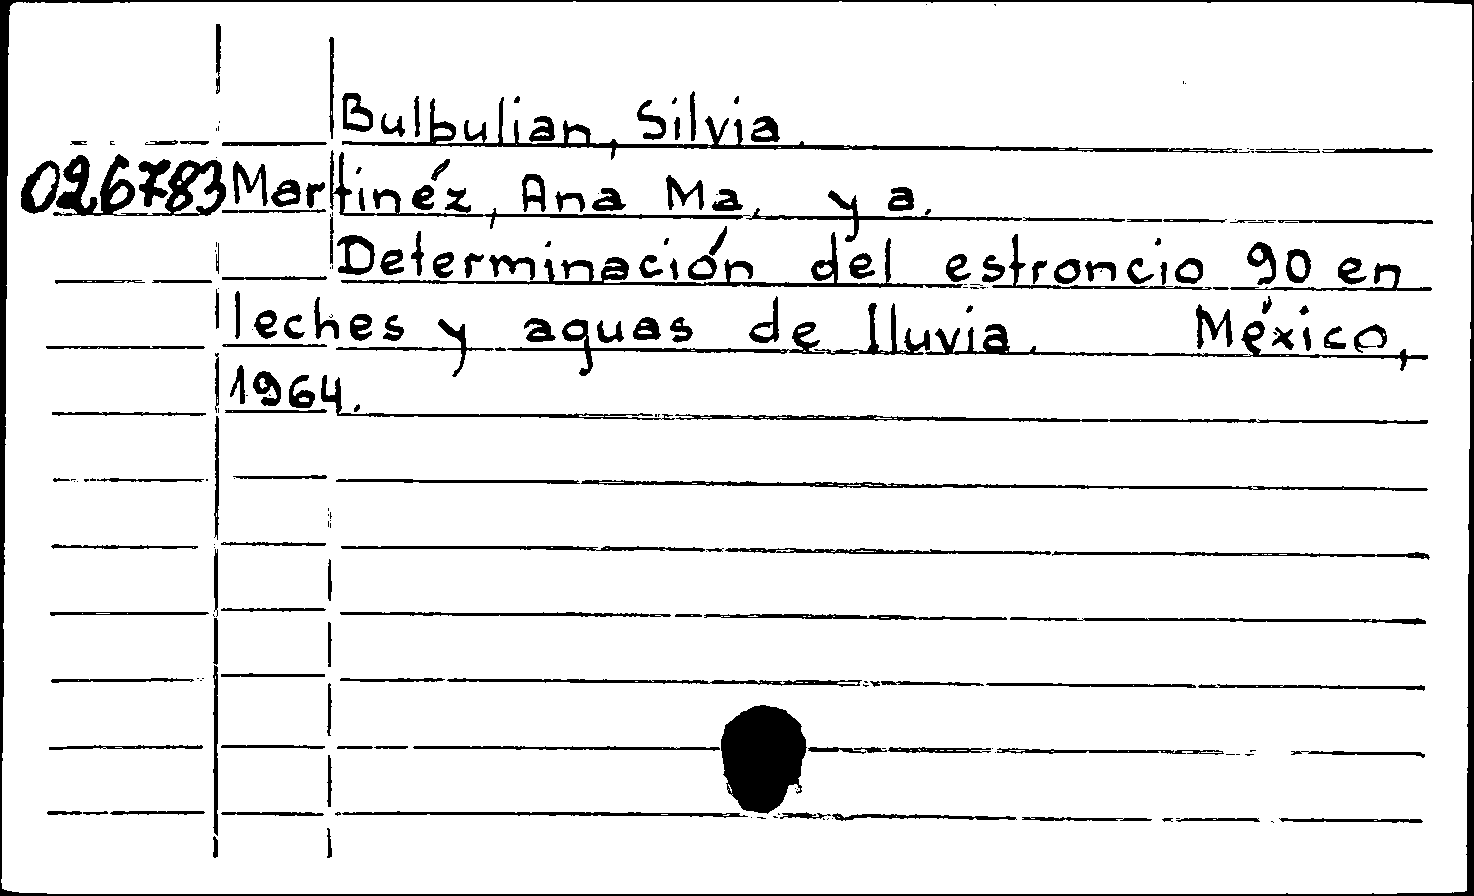 Bulbulian, Silvia.
026783 Martinéz, Ana Ma. y a.
Determinación del estroncio 90 en
leches y aguas de lluvia. México,
1964.